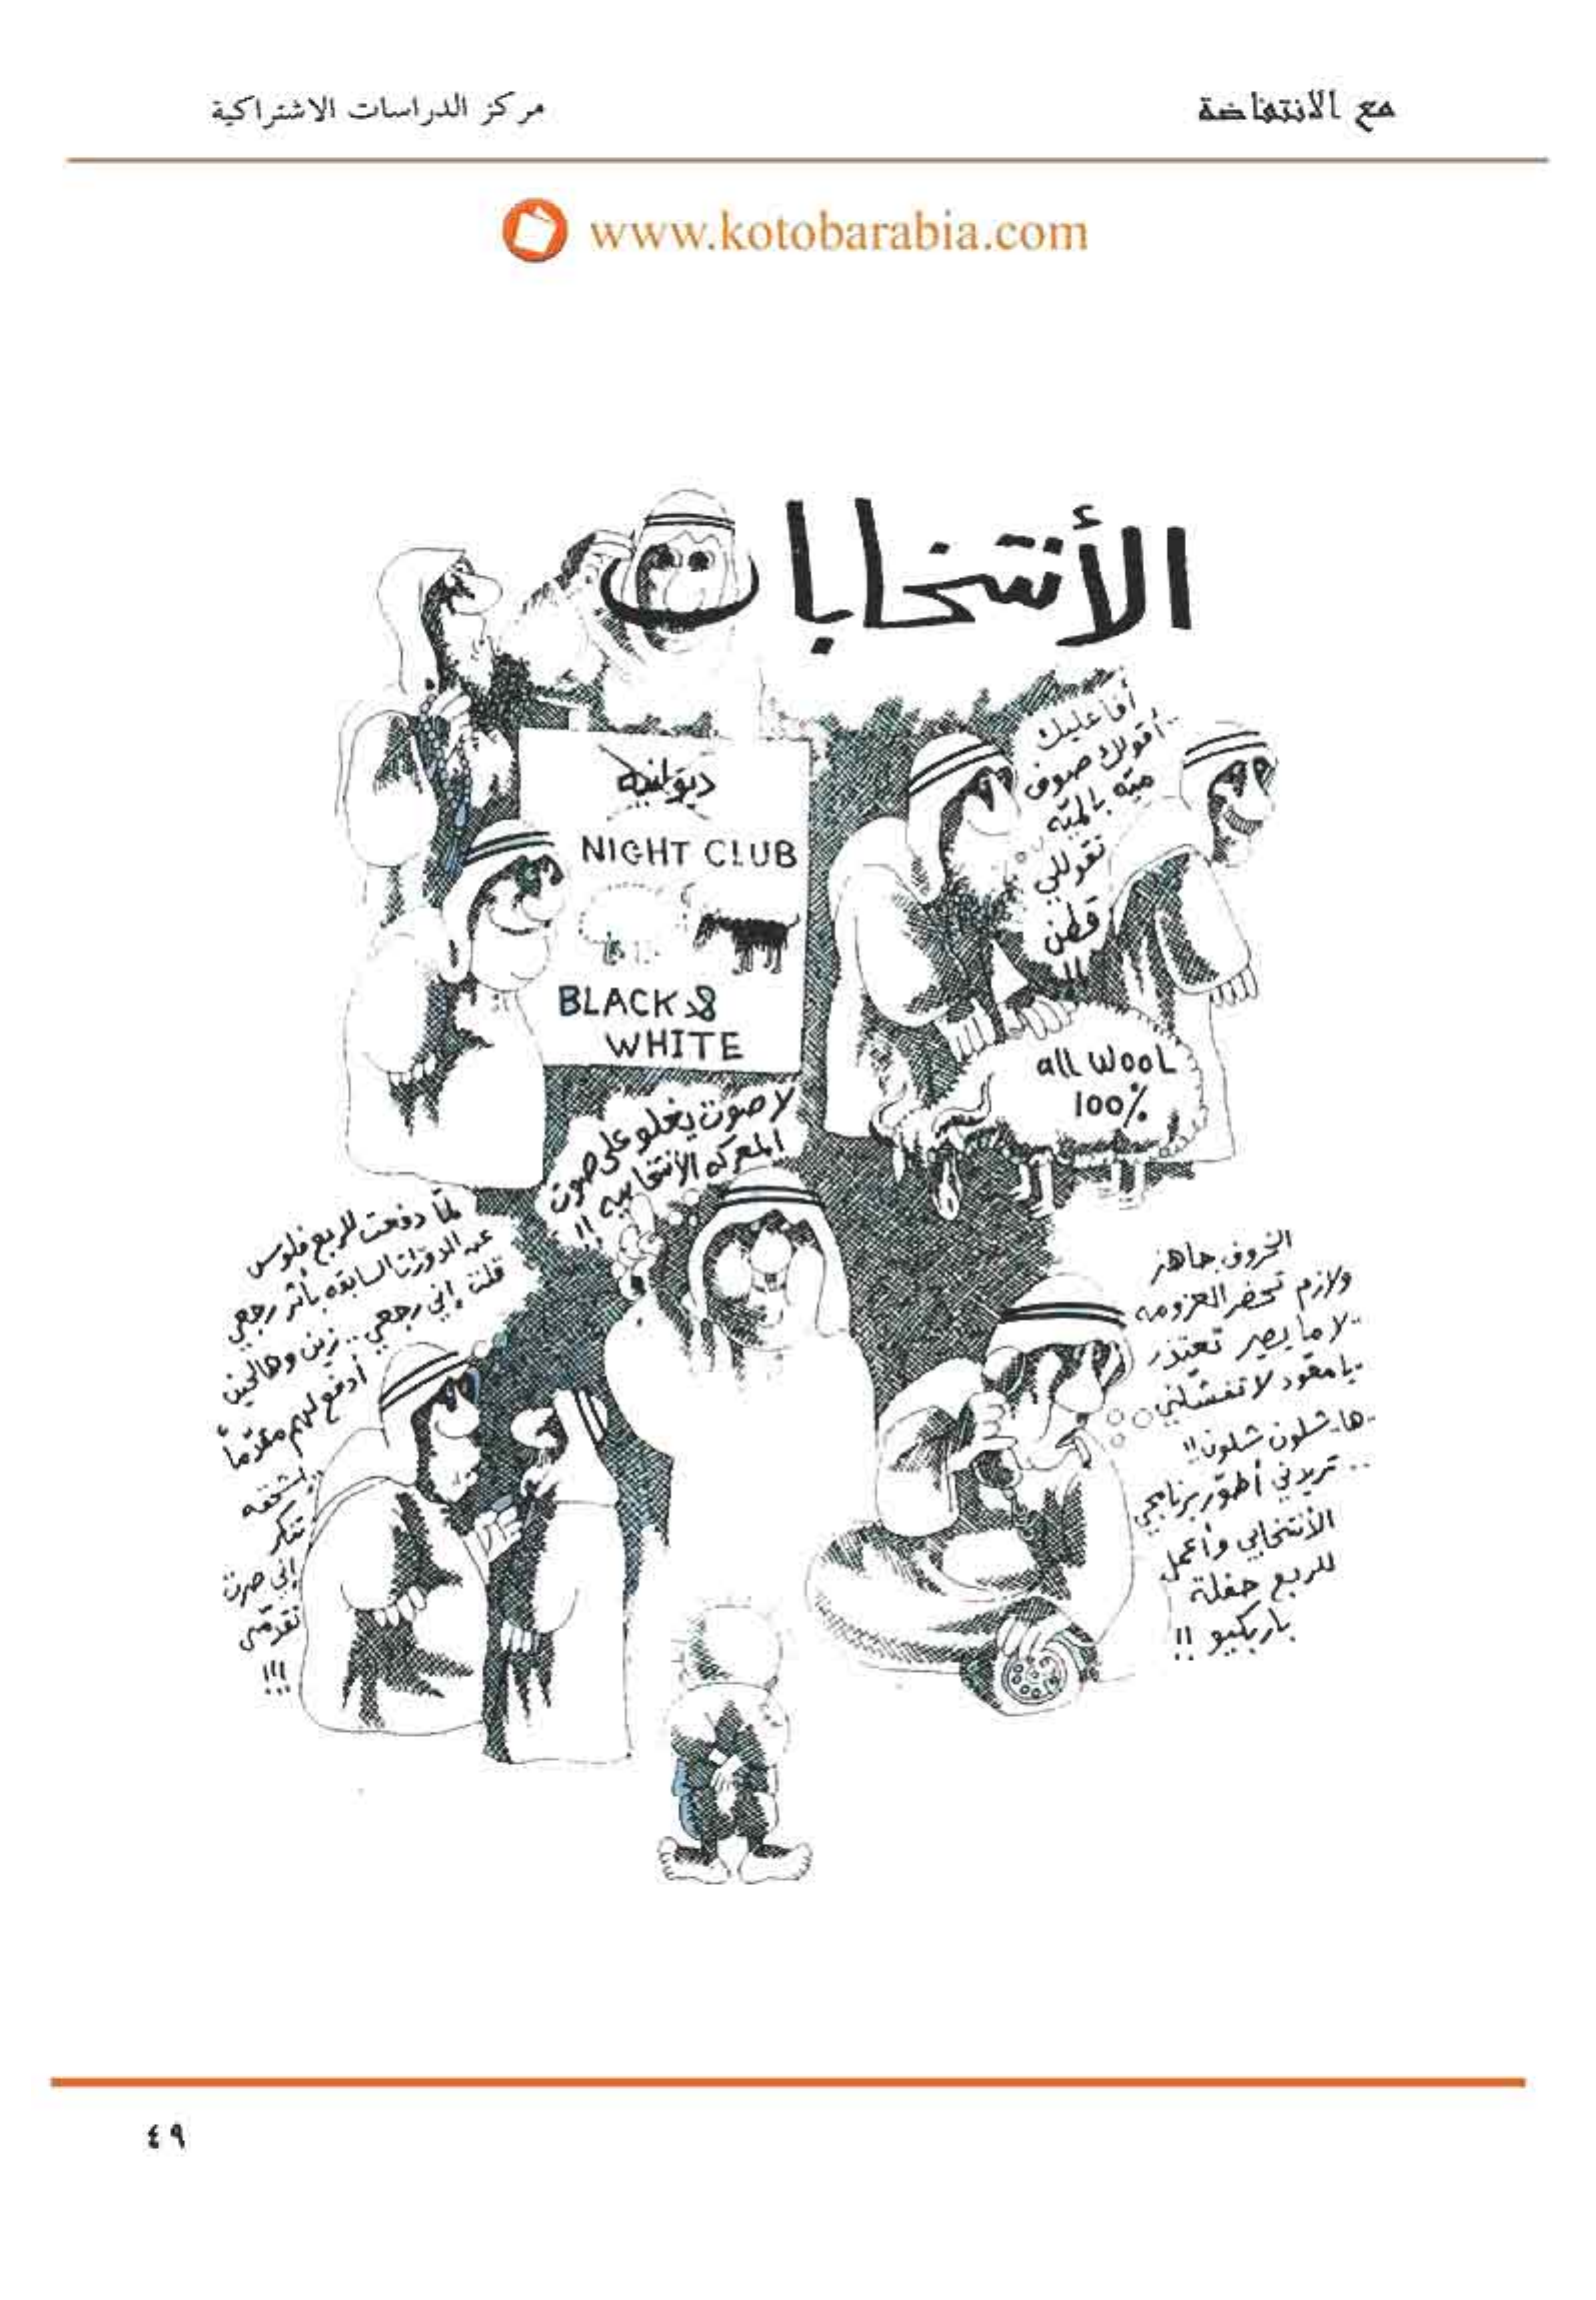 مع الانتفاضة
مركز الدراسات الاشتراكية
www.kotobarabia.com
الأنتخابات
أفا عليك
.. أقولك صوف
ميّه بالميّه
تقوللي
قطن
!!
all wool
100%
ديوانيه
NIGHT CLUB
BLACK &
WHITE
لا صوت يعلو على صوت
المعركه الأنتخابيه !!
لمّا دفعت للربع فلوس
عن الدورات السابقه بأثر رجعي
قلت إني رجعي .. زين وهالحين
أدفع لهم مقدّماً
تنكر
إني صرت
تقدّمي
!!!
الخروف جاهز
ولازم تحضر العزومه
.. لا ما يصير تعتذر
يا معود لا تفشّلني
.. ها.. شلون شلون !!
.. تريدني أطوّر برنامجي
الأنتخابي وأعمل
للربع حفلة
باربكيو !!
٤٩